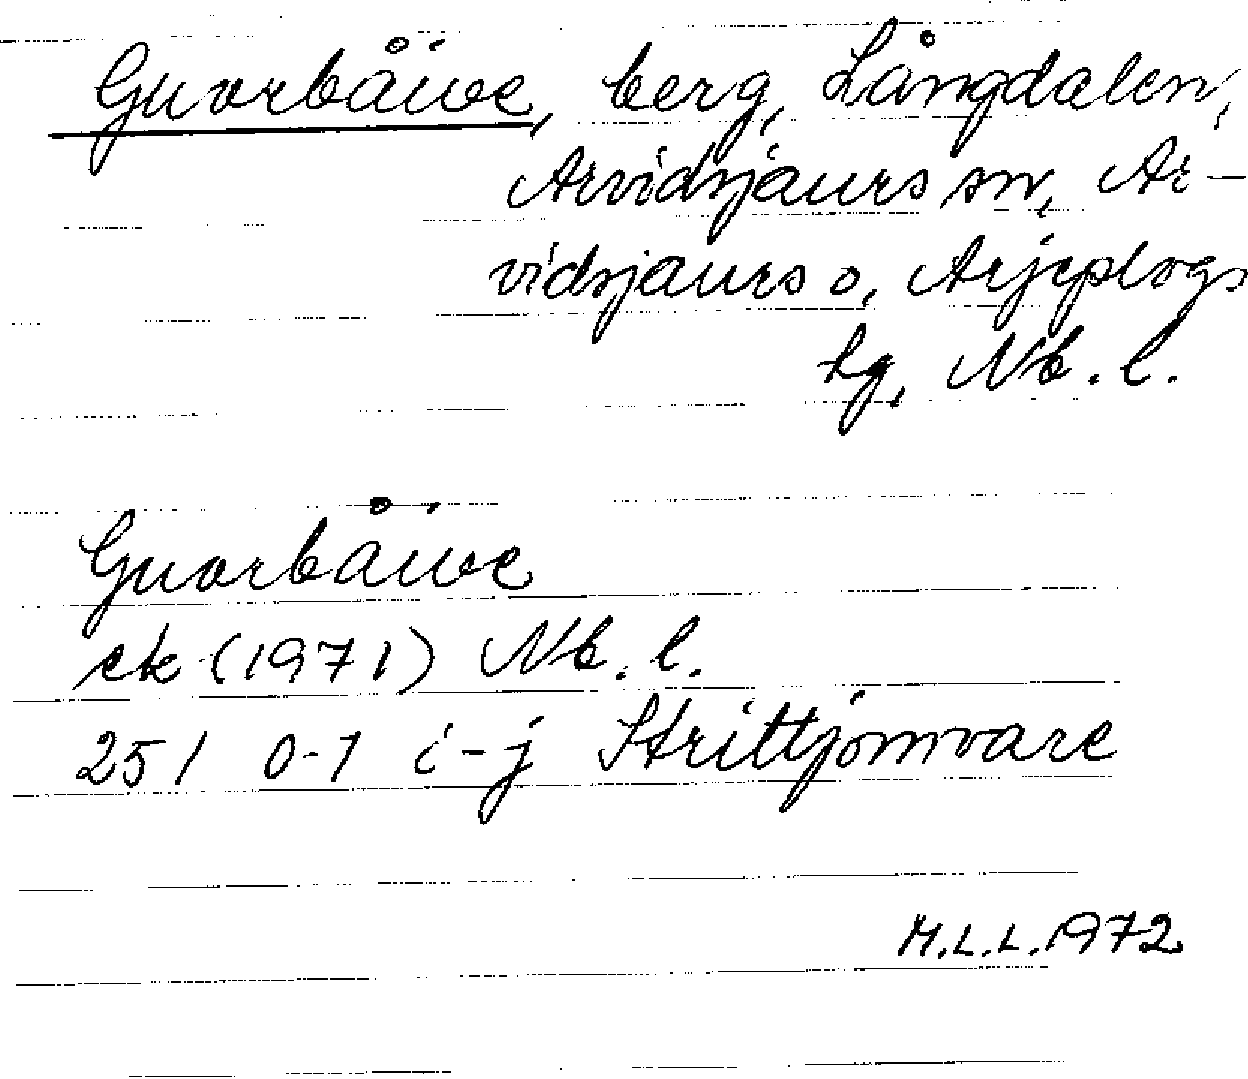 Guorbåive, berg, Långdalen,
Arvidsjaurs sn, Ar-
vidsjaurs o, Arjeplogs
lg, Nb. l.
Guorbåive
ek (1971) Nb. l.
25 I 0-1 i-j Strittjomvare
M.L.L. 1972